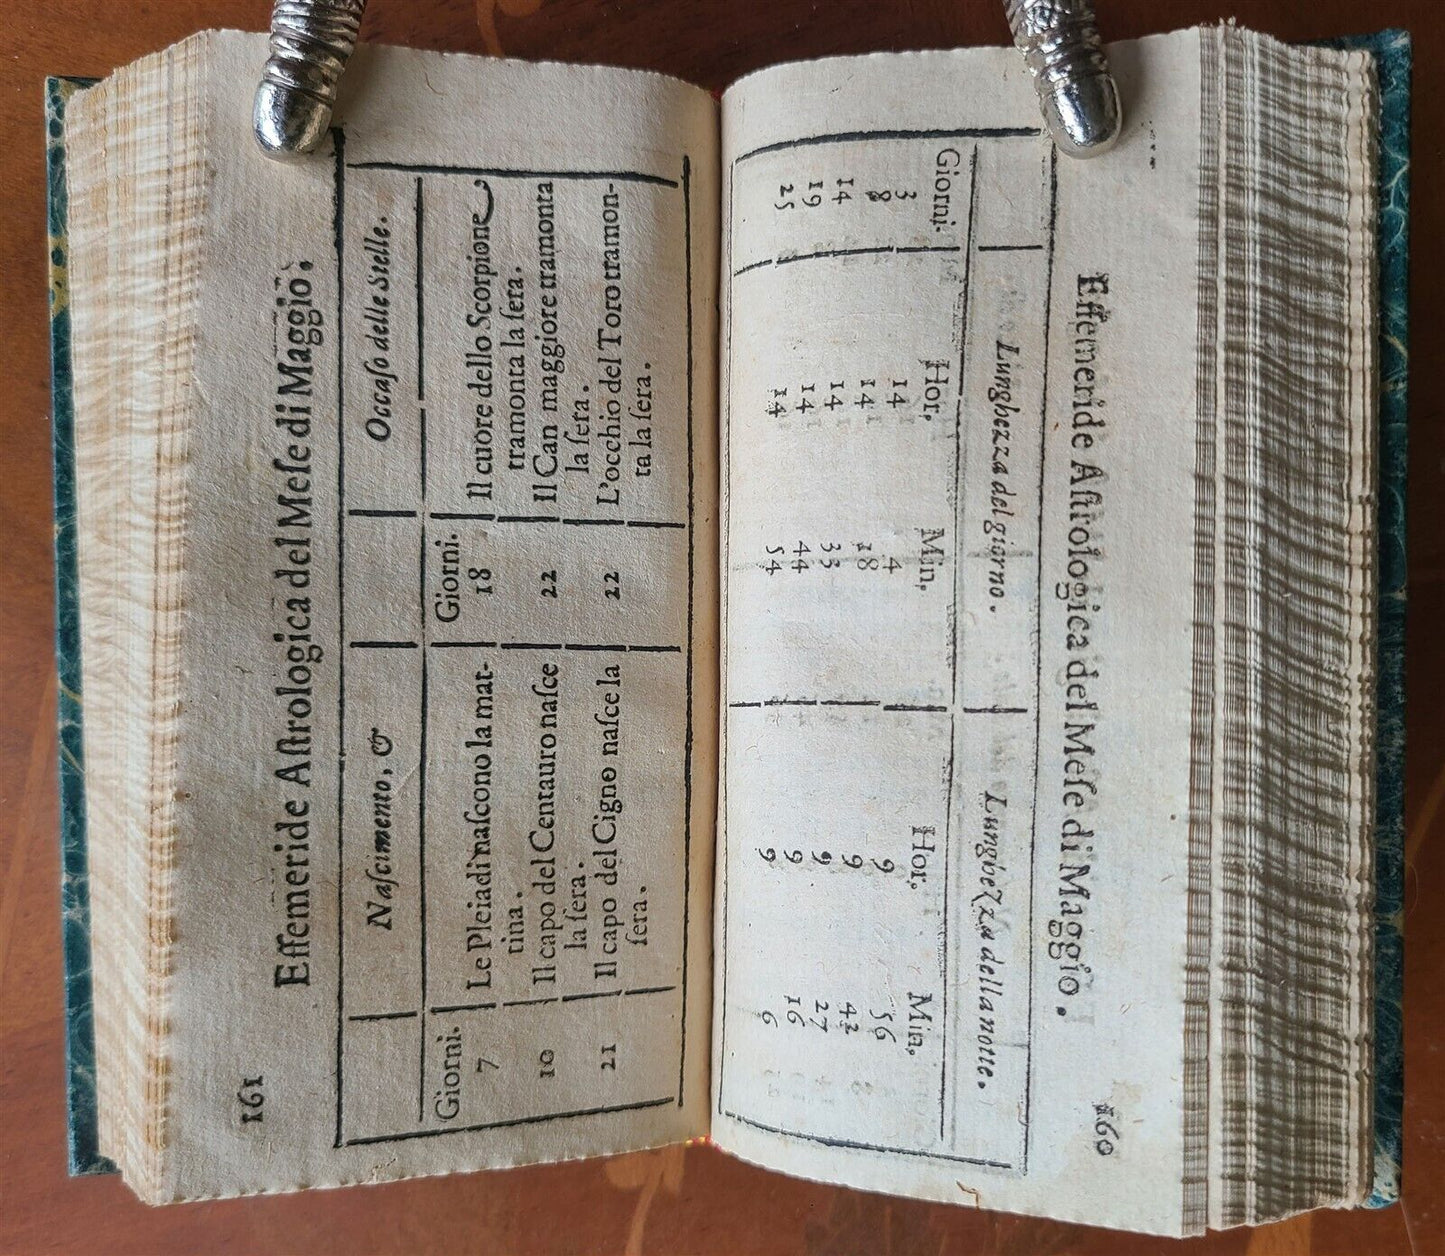 160
Effemeride Aſtrologica del Meſe di Maggio.
Lunghezza del giorno. Lunghezza della notte.
Giorni. Hor, Min, Hor, Min,
3 14 4 9 56
8 14 18 9 42
14 14 33 9 27
19 14 44 9 16
25 14 54 9 6
161
Effemeride Aſtrologica del Meſe di Maggio.
Naſcimento, & Occaſo delle Stelle.
Giorni. Giorni.
7 Le Pleiadi naſcono la mat- 18 Il cuore dello Scorpione
tina. tramonta la ſera.
10 Il capo del Centauro naſce 22 Il Can maggiore tramonta
la ſera. la ſera.
21 Il capo del Cigno naſce la 22 L'occhio del Toro tramon-
ſera. ta la ſera.